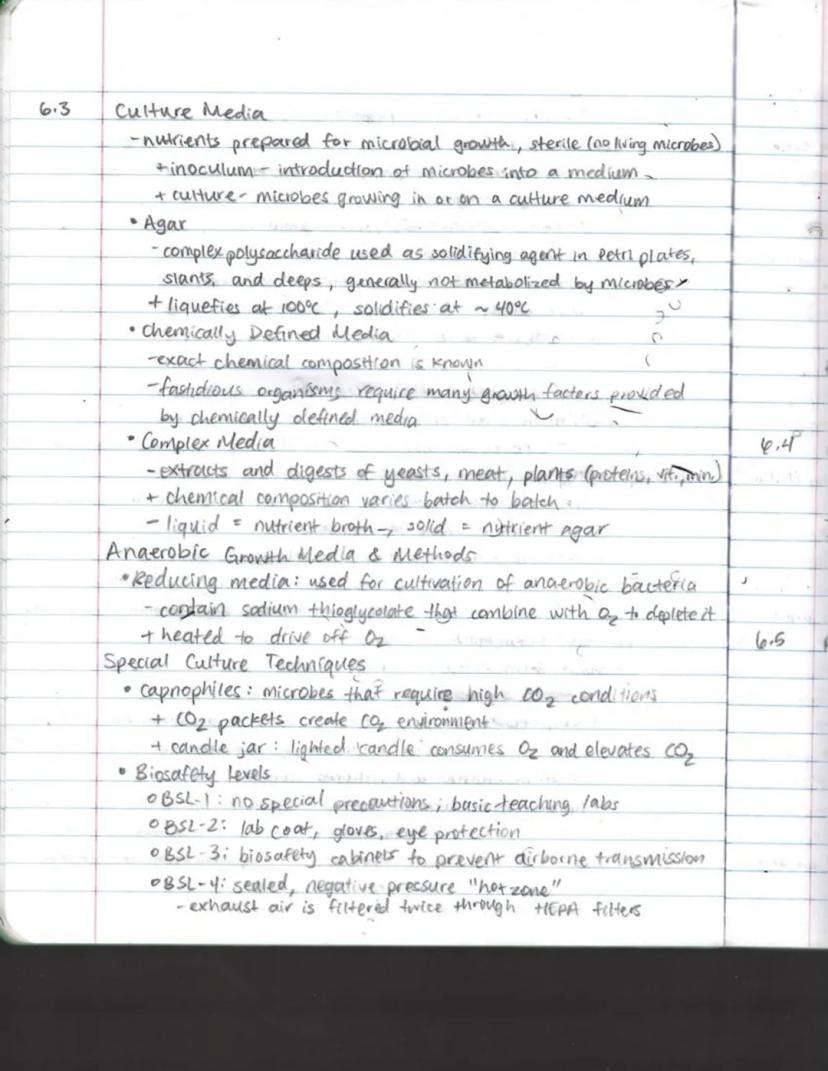 6.3 Culture Media
-nutrients prepared for microbial growth, sterile (no living microbes)
+inoculum - introduction of microbes into a medium
+ culture - microbes growing in or on a culture medium
• Agar
- complex polysaccharide used as solidifying agent in Petri plates,
slants, and deeps, generally not metabolized by microbes
+ liquefies at 100°C, solidifies at ~ 40°C
• Chemically Defined Media
-exact chemical composition is known
-fastidious organisms require many growth factors provided
by chemically defined media
• Complex Media
-extracts and digests of yeasts, meat, plants (proteins, vit., min.)
+ chemical composition varies batch to batch
- liquid = nutrient broth -, solid = nutrient agar
Anaerobic Growth Media & Methods
• Reducing media: used for cultivation of anaerobic bacteria
- contain sodium thioglycolate that combine with O₂ to deplete it
+ heated to drive off O₂
Special Culture Techniques
• capnophiles: microbes that require high CO₂ conditions
+ CO₂ packets create CO₂ environment
+ candle jar: lighted candle consumes O₂ and elevates CO₂
• Biosafety Levels
○ BSL-1: no special precautions; basic teaching labs
○ BSL-2: lab coat, gloves, eye protection
○ BSL-3: biosafety cabinets to prevent airborne transmission
○ BSL-4: sealed, negative pressure "hot zone"
- exhaust air is filtered twice through HEPA filters
6.4
6.5